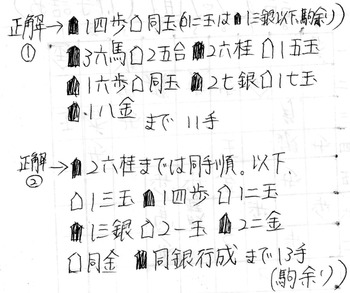 正解① → ☗1四歩☖同玉(☖1二玉は☗1三銀以下駒余り)
☗3六馬☖2五合☗2六桂☖1五玉
☗1六歩☖同玉☗2七銀☖1七玉
☗1八金 まで11手
正解② → ☗2六桂までは同手順。以下、
☖1三玉☗1四歩☖1二玉
☗1三銀☖2一玉☗2二金
☖同金☗同銀行成まで13手
(駒余り)